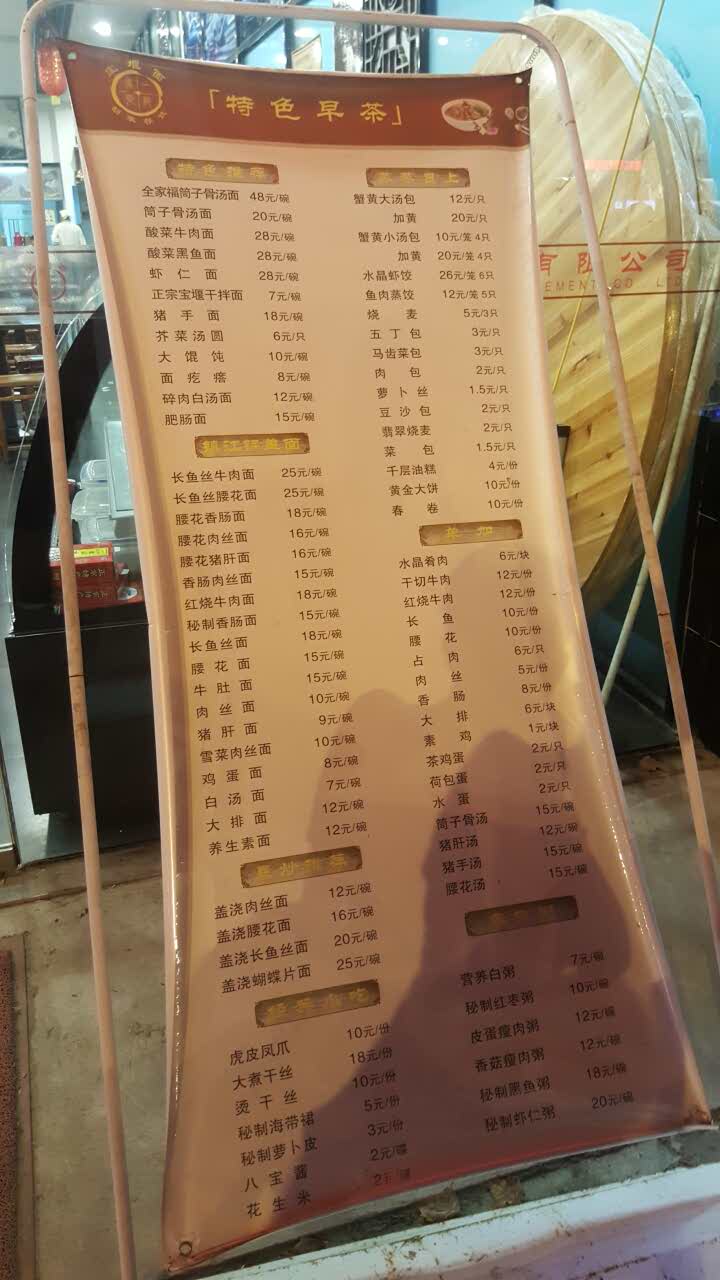 宝堰面
「特色早茶」
特色推荐
全家福筒子骨汤面 48元/碗
筒子骨汤面 20元/碗
酸菜牛肉面 28元/碗
酸菜黑鱼面 28元/碗
虾仁面 28元/碗
正宗宝堰干拌面 7元/碗
猪手面 18元/碗
芥菜汤圆 6元/只
大馄饨 10元/碗
面疙瘩 8元/碗
碎肉白汤面 12元/碗
肥肠面 15元/碗
镇江锅盖面
长鱼丝牛肉面 25元/碗
长鱼丝腰花面 25元/碗
腰花香肠面 18元/碗
腰花肉丝面 16元/碗
腰花猪肝面 16元/碗
香肠肉丝面 15元/碗
红烧牛肉面 18元/碗
秘制香肠面 15元/碗
长鱼丝面 18元/碗
腰花面 15元/碗
牛肚面 15元/碗
肉丝面 10元/碗
猪肝面 9元/碗
雪菜肉丝面 10元/碗
鸡蛋面 8元/碗
白汤面 7元/碗
大排面 12元/碗
养生素面 12元/碗
盖浇肉丝面 12元/碗
盖浇腰花面 16元/碗
盖浇长鱼丝面 20元/碗
盖浇蝴蝶片面 25元/碗
虎皮凤爪 10元/份
大煮干丝 18元/份
烫干丝 10元/份
秘制海带裙 5元/份
秘制萝卜皮 3元/份
八宝酱 2元/碟
花生米 2元/碟
蒸蒸日上
蟹黄大汤包 12元/只
加黄 20元/只
蟹黄小汤包 10元/笼 4只
加黄 20元/笼 4只
水晶虾饺 26元/笼 6只
鱼肉蒸饺 12元/笼 5只
烧麦 5元/3只
五丁包 3元/只
马齿菜包 3元/只
肉包 2元/只
萝卜丝 1.5元/只
豆沙包 2元/只
翡翠烧麦 2元/只
菜包 1.5元/只
千层油糕 4元/份
黄金大饼 10元/份
春卷 10元/份
单加
水晶肴肉 6元/块
干切牛肉 12元/份
红烧牛肉 12元/份
长鱼 10元/份
腰花 10元/份
占肉 6元/只
肉丝 5元/份
香肠 8元/份
大排 6元/块
素鸡 1元/块
茶鸡蛋 2元/只
荷包蛋 2元/只
水蛋 2元/只
筒子骨汤 15元/碗
猪肝汤 12元/碗
猪手汤 15元/碗
腰花汤 15元/碗
营养白粥 7元/碗
秘制红枣粥 10元/碗
皮蛋瘦肉粥 12元/碗
香菇瘦肉粥 12元/碗
秘制黑鱼粥 18元/碗
秘制虾仁粥 20元/碗
有限公司
EMENT CO. LTD